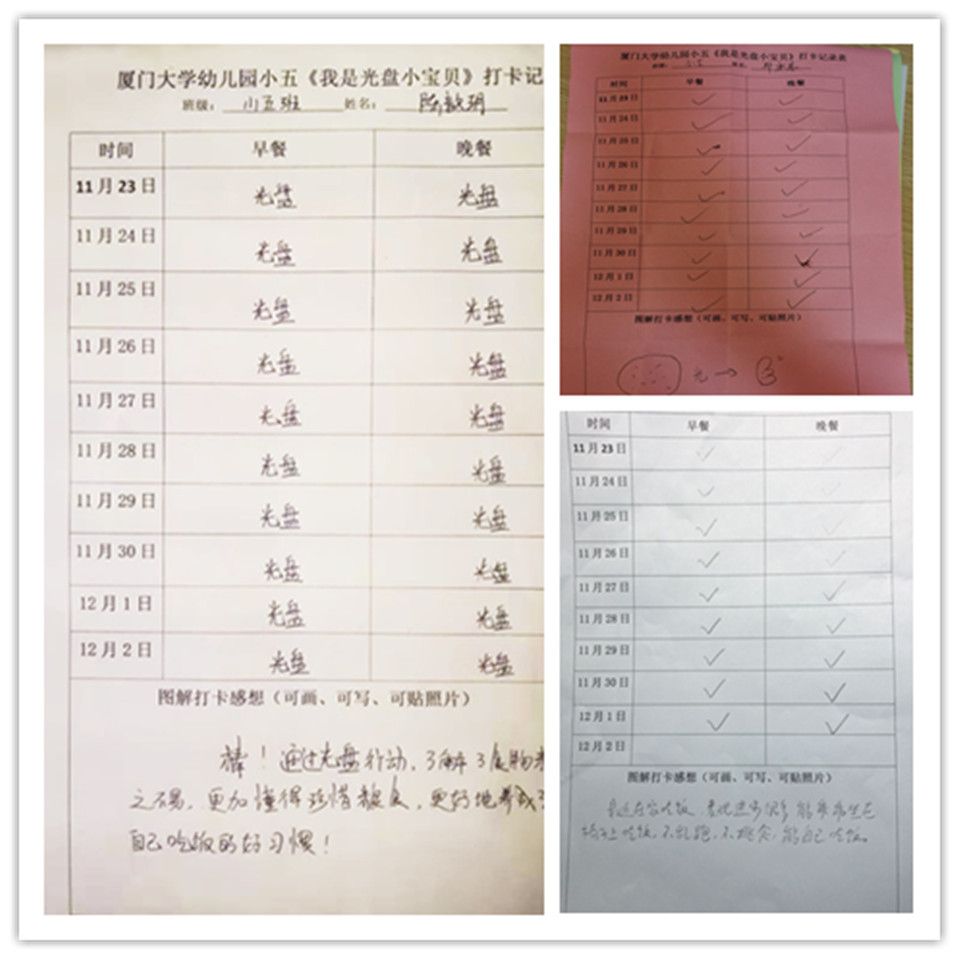 厦门大学幼儿园小五《我是光盘小宝贝》打卡记
班级： 小五班 姓名： 陈
时间 早餐 晚餐
11月23日 光盘 光盘
11月24日 光盘 光盘
11月25日 光盘 光盘
11月26日 光盘 光盘
11月27日 光盘 光盘
11月28日 光盘 光盘
11月29日 光盘 光盘
11月30日 光盘 光盘
12月1日 光盘 光盘
12月2日 光盘 光盘
图解打卡感想（可画、可写、可贴照片）
棒！通过光盘行动，了解了食物来
之不易，更加懂得珍惜粮食，更好地养成了
自己吃饭的好习惯！
厦门大学幼儿园小五《我是光盘小宝贝》打卡记录表
班级： 小五 姓名：
时间 早餐 晚餐
11月23日 ✓ ✓
11月24日 ✓ ✓
11月25日 ✓ ✓
11月26日 ✓ ✓
11月27日 ✓ ✓
11月28日 ✓ ✓
11月29日 ✓ ✓
11月30日 ✓ ✓
12月1日 ✓ ✓
12月2日 ✓ ✓
图解打卡感想（可画、可写、可贴照片）
光→
时间 早餐 晚餐
11月23日 ✓ ✓
11月24日 ✓ ✓
11月25日 ✓ ✓
11月26日 ✓ ✓
11月27日 ✓ ✓
11月28日 ✓ ✓
11月29日 ✓ ✓
11月30日 ✓ ✓
12月1日 ✓ ✓
12月2日
图解打卡感想（可画、可写、可贴照片）
最近在家吃饭，表现进步很多，能乖乖坐在
椅子上吃饭，不乱跑，不挑食，能自己吃饭。